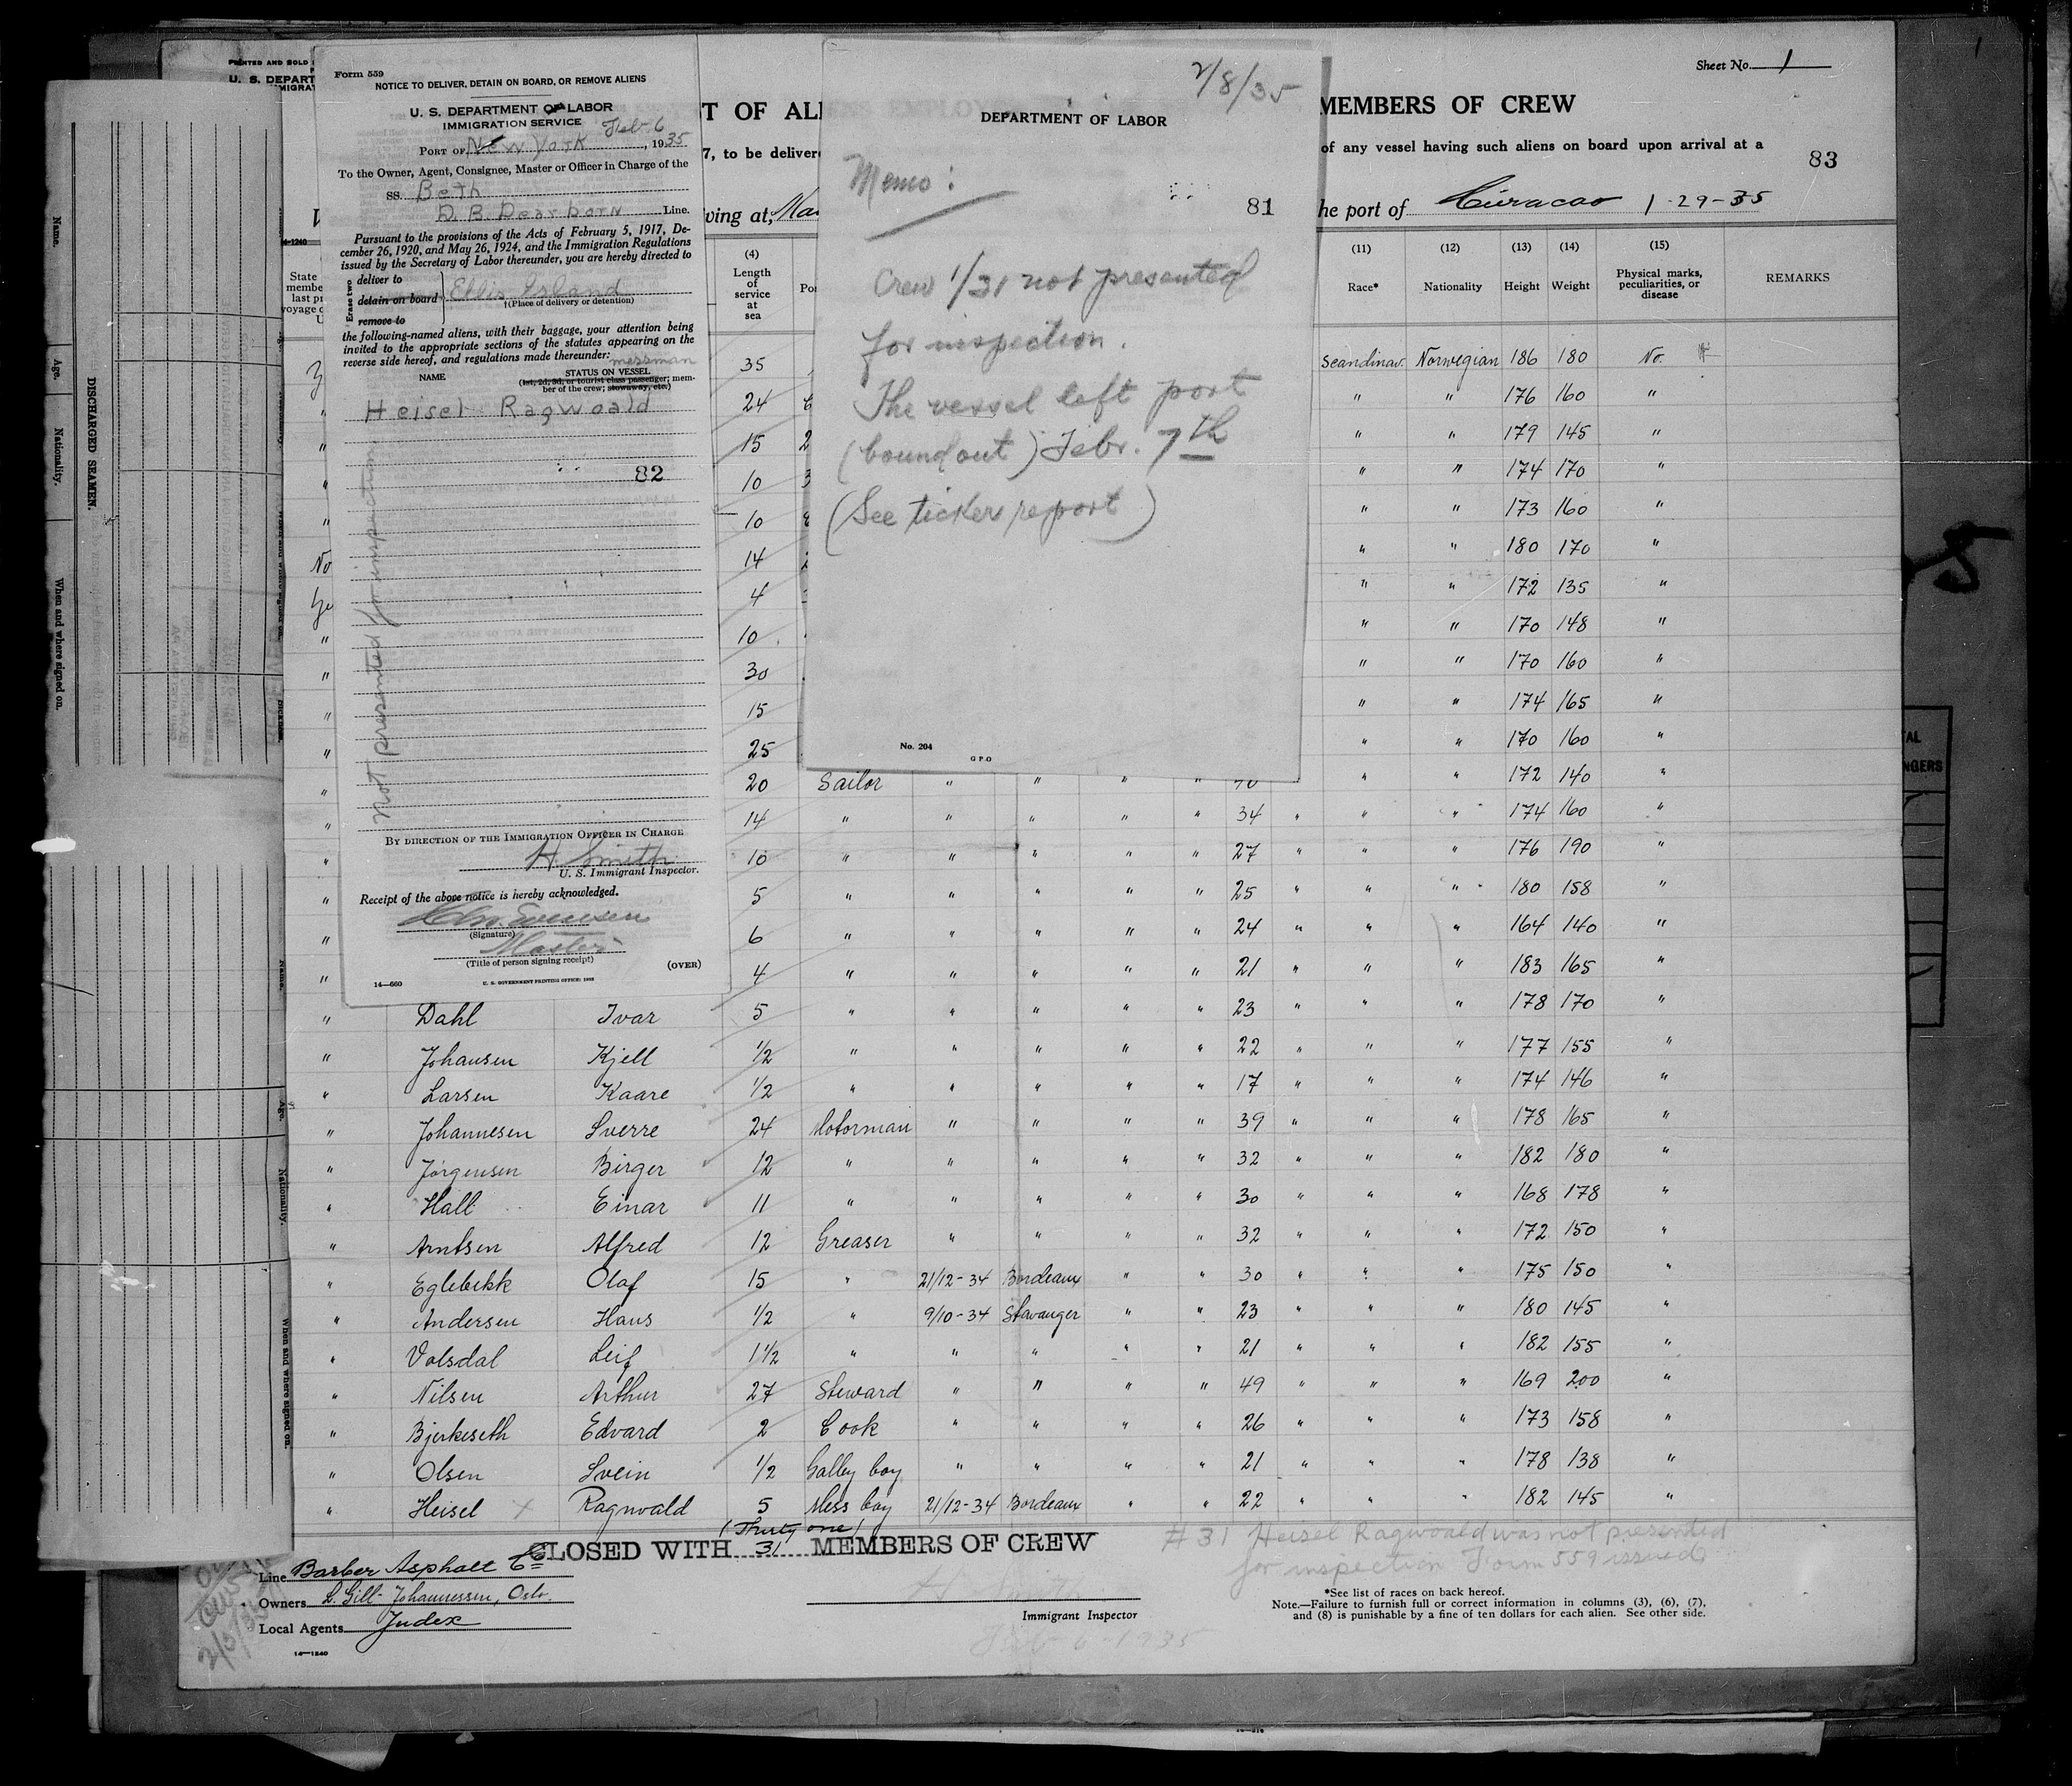 Form 559
NOTICE TO DELIVER, DETAIN ON BOARD, OR REMOVE ALIENS
U. S. DEPARTMENT OF LABOR
IMMIGRATION SERVICE
Feb 6
PORT OF New York, 1935
To the Owner, Agent, Consignee, Master or Officer in Charge of the
SS. Beth
D. B. Dearborn Line.
Pursuant to the provisions of the Acts of February 5, 1917, De-
cember 26, 1920, and May 26, 1924, and the Immigration Regulations
issued by the Secretary of Labor thereunder, you are hereby directed to
Erase two
deliver to
detain on board Ellis Island
†(Place of delivery or detention)
remove to
the following-named aliens, with their baggage, your attention being
invited to the appropriate sections of the statutes appearing on the
reverse side hereof, and regulations made thereunder: messman
NAME STATUS ON VESSEL
(1st, 2d, 3d, or tourist class passenger; mem-
ber of the crew; stowaway, etc.)
Heisel Ragwoald
82
Not presented for inspection
BY DIRECTION OF THE IMMIGRATION OFFICER IN CHARGE
H. Smith
U. S. Immigrant Inspector.
Receipt of the above notice is hereby acknowledged.
(Signature)
Master
(Title of person signing receipt)
(OVER)
14—660 U. S. GOVERNMENT PRINTING OFFICE
2/8/35
DEPARTMENT OF LABOR
Memo:
81
Crew 1/31 not presented
for inspection.
The vessel left port
(bound out) Febr. 7th
(See tickers report)
No. 204
GPO
Sheet No. 1
T OF ALI MEMBERS OF CREW
7, to be delivere of any vessel having such aliens on board upon arrival at a
83
ving at, he port of Curacao 1-29-35
(4) Length of service at sea (11) Race* (12) Nationality (13) Height (14) Weight (15) Physical marks, peculiarities, or disease REMARKS
35 Scandinav. Norwegian 186 180 No.
24 " " 176 160 "
15 " " 179 145 "
10 " " 174 170 "
10 " " 173 160 "
No 14 " " 180 170 "
4 " " 172 135 "
" 10 " " 170 148 "
" 30 " " 170 160 "
" 15 " " 174 165 "
" 25 " " 170 160 "
" 20 Sailor " " " " " " 172 140 "
" 14 " " " " " 34 " " " 174 160 "
" 10 " " " " " 27 " " " 176 190 "
" 5 " " " " " 25 " " " 180 158 "
" 6 " " " " " 24 " " " 164 140 "
" 4 " " " " " 21 " " " 183 165 "
" Dahl Ivar 5 " " " " " 23 " " " 178 170 "
" Johansen Kjell 1/2 " " " " " 22 " " " 177 155 "
" Larsen Kaare 1/2 " " " " " 17 " " " 174 146 "
" Johannesen Sverre 24 Motorman " " " " 39 " " " 178 165 "
" Jørgensen Birger 12 " " " " " 32 " " " 182 180 "
" Hall Einar 11 " " " " " 30 " " " 168 178 "
" Arntsen Alfred 12 Greaser " " " " 32 " " " 172 150 "
" Eglebekk Olaf 15 " 21/12-34 Bordeaux " " 30 " " " 175 150 "
" Andersen Hans 1/2 " 9/10-34 Stavanger " " 23 " " " 180 145 "
" Volsdal Leif 1 1/2 " " " " " 21 " " " 182 155 "
" Nilsen Arthur 27 Steward " " " " 49 " " " 169 200 "
" Bjerkeseth Edvard 2 Cook " " " " 26 " " " 173 158 "
" Olsen Svein 1/2 Galley boy " " " " 21 " " " 178 138 "
" Heisel x Ragnvald 5 Mess boy 21/12-34 Bordeaux " " 22 " " " 182 145 "
(Thirty one)
CLOSED WITH 31 MEMBERS OF CREW
#31 Heisel Ragwoald was not presented
for inspection Form 559 issued
Line Barber Asphalt Co
Owners L. Gill-Johannessen, Oslo.
Local Agents Judex
14—1240
H. Smith
Immigrant Inspector
Feb 6-1935
*See list of races on back hereof.
Note.—Failure to furnish full or correct information in columns (3), (6), (7),
and (8) is punishable by a fine of ten dollars for each alien. See other side.
DISCHARGED SEAMEN.
Name. Age. Nationality. When and where signed on.
Name. Age. Nationality. When and where signed on.